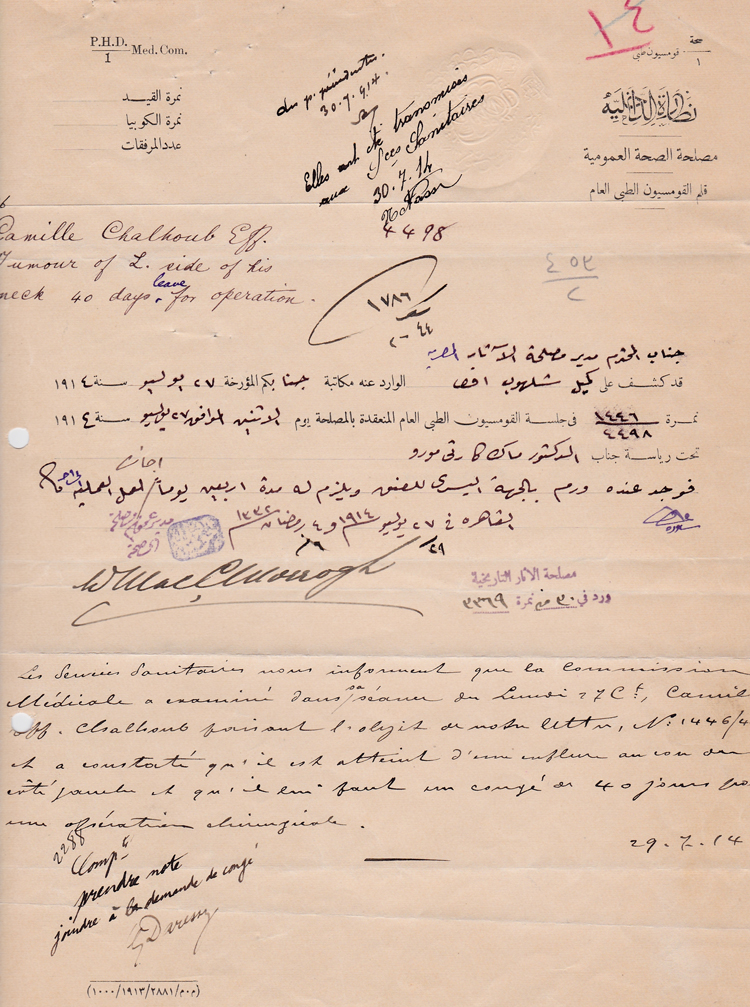 P.H.D.
1
Med. Com.
١٤
صحة
قومسيون طبي
١
نمرة القيد
نمرة الكوبيا
عدد المرفقات
نظارة الداخلية
مصلحة الصحة العمومية
قلم القومسيون الطبي العام
30.7.914
Elles ont été transmises
aux Sces Sanitaires
30.7.14
Camille Chalhoub Eff.
Tumour of L. side of his
neck 40 days leave for operation.
4498
٤٥٣
٢
١٧٨٦
جناب المحترم مدير مصلحة الآثار المصرية
قد كشف على كميل شلهوب افندى الوارد عنه مكاتبة جنابكم المؤرخة ٢٧ يوليو سنة ١٩١٤
نمرة ١٤٤٦ / ٤٤٩٨ في جلسة القومسيون الطبي العام المنعقدة بالمصلحة يوم الاثنين الموافق ٢٧ يوليو سنة ١٩١٤
تحت رياسة جناب الدكتور ماك كارتى مورو
اجازة
فوجد عنده ورم بالجهة اليسرى للعنق ويلزم له مدة اربعين يوماً لعمل العملية
القاهرة في ٢٧ يوليو ١٩١٤ و ٤ رمضان ١٣٣٢
٢٩
مصلحة الاثار التاريخية
ورد في ٣٠ نمرة ٣٣٦٩
Les Services Sanitaires nous informent que la Commission
Médicale a examiné dans sa séance du Lundi 27 Ct, Camil
Eff. Chalhoub faisant l'objet de notre lettre, No 1446/4
et a constaté qu'il est atteint d'une enflure au cou du
côté gauche et qu'il lui faut un congé de 40 jours po
une opération chirurgicale.
29.7.14
2288
Compté
prendre note
joindre à la demande de congé
G Daressy
(م.م/٢٨٨١/١٩١٣/١٠٠٠)